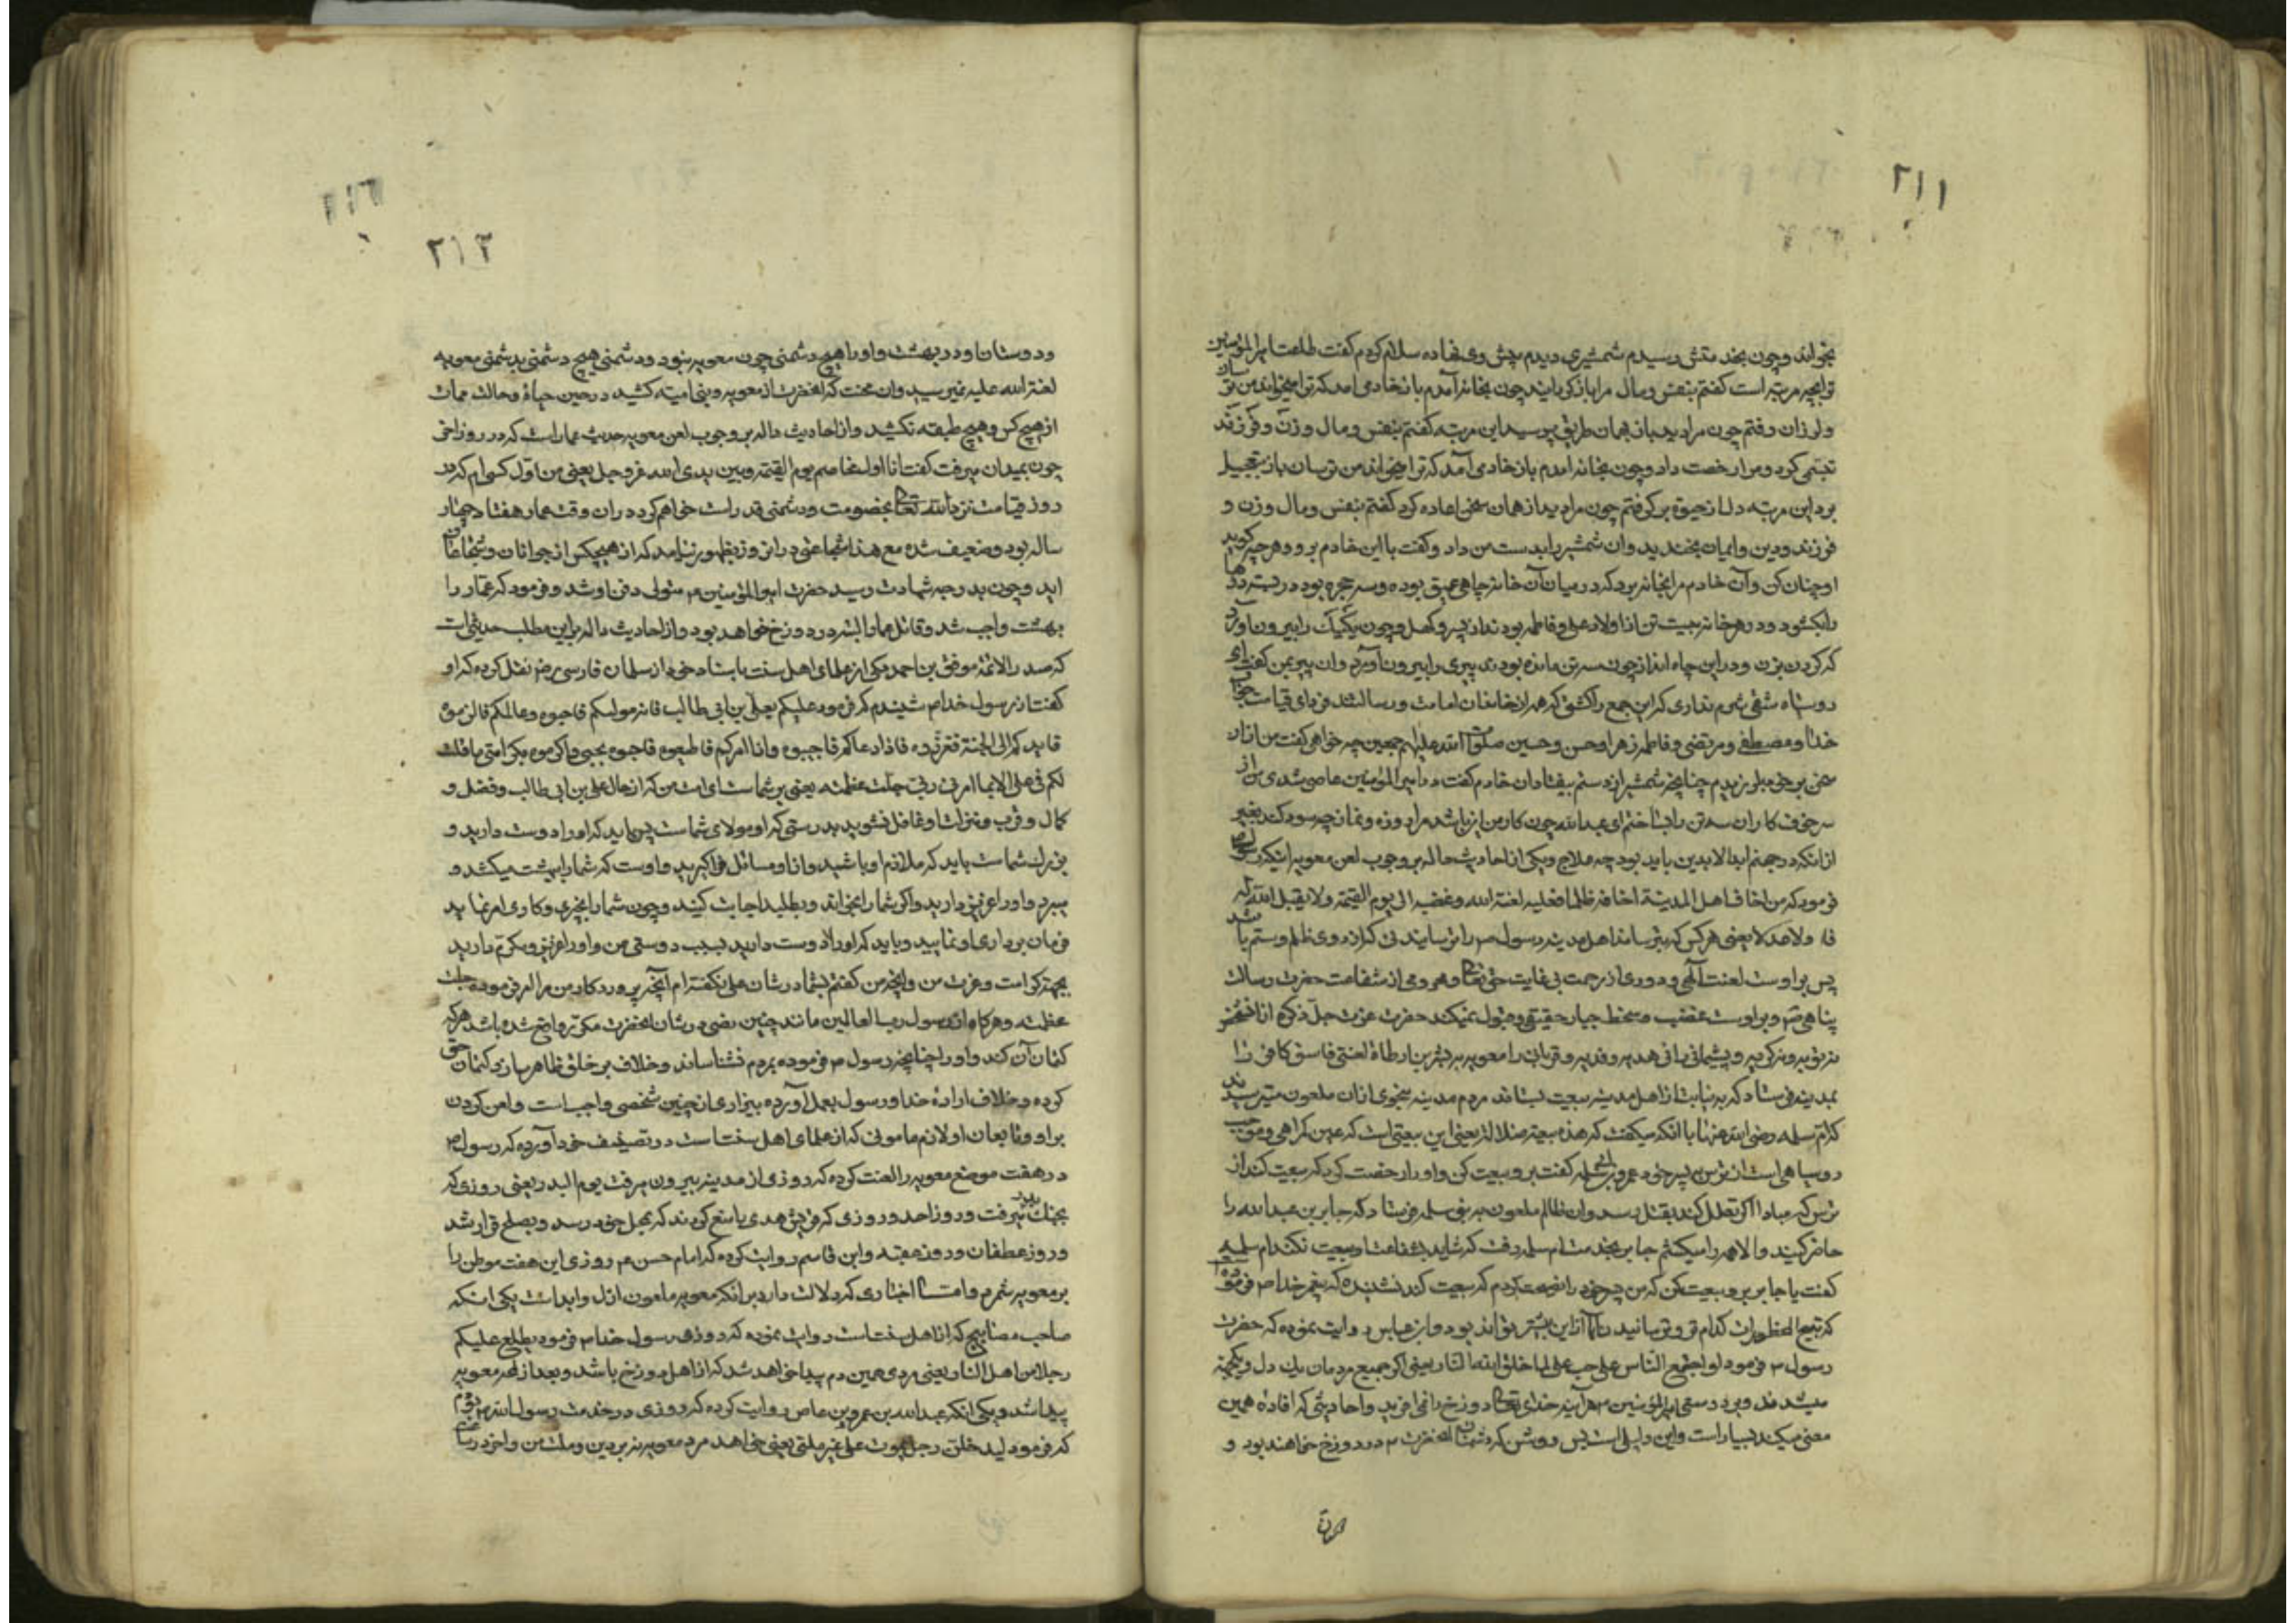 ۲۱۱
بخواند و چون بخدمتش رسیدم شمشیری دیدم پیش وی نهاده سلام کردم گفت طاعت امیرالمؤمنین
ترا بچه مرتبه است گفتم بنفس و مال مرا باز گردانید چون بخانه آمدم باز خادمی امد که ترا میخواند من ترسان
و لرزان رفتم چون مرا دید باز بهمان طریق پرسید این مرتبه گفتم بنفس و مال و زن و فرزند
تبسمی کرد و مرا رخصت داد و چون بخانه امدم باز خادمی آمد که ترا میخواند من ترسان باز بتعجیل
برد این مرتبه دل از حیوة برگرفتم چون مرا دید از همان سخن اعاده کرد گفتم بنفس و مال و زن و
فرزند و دین و ایمان بخندید و ان شمشیر را بدست من داد و گفت با این خادم برو و هرچه گوید
او چنان کن و آن خادم مرا بخانه برد که در میان آن خانه چاهی عمیق بوده و سه حجره بود در بسته درها
را بکشود و در هر خانه بیست تن از اولاد علی و فاطمه بودند از پیر و کهل و چون یکیک را بیرون آورد
که گردن بزن و در این چاه انداز چون سه تن مانده بودند پیری را بیرون آورد و ان پیر بمن گفت ای
روسیاه شقی شرم نداری که این جمع را کشتی که همه از خاندان امامت و رسالتند فردای قیامت جواب
خدا و مصطفی و مرتضی و فاطمه زهرا و حسن و حسین صلوات الله علیهم اجمعین چه خواهی گفت من از ان
سخن بر خود بلرزیدم چنانچه شمشیر از دستم بیفتاد ان خادم گفت در امیرالمؤمنین عاصی شدی من از
سر خوف کار ان سه تن را بساختم ای عبدالله چون کار من این باشد مرا روزه و نماز چه سود کند بغیر
از انکه در جهنم ابد الابدین باید بود چه علاج و یکی از احادیث داله بر وجوب لعن معویه اینکه رسول ص
فرمود که من اخاف اهل المدینة اخافه ظلما فعلیه لعنة الله و غضبه الی یوم القیمة و لا یقبل الله له
صرفا و لا عدلا یعنی هر کس که بترساند اهل مدینه رسول ص را ترسانیدنی که از روی ظلم و ستم باشد
پس بر اوست لعنت الهی و دوری از رحمت بی غایت حق تعالی و محرومی از شفاعت حضرت رسالت
پناهی ص و بر اوست غضب و سخط جبار حقیقی و قبول نمیکند حضرت عزت جل ذکره از انشخص
نه توبه و نه گریه و پشیمانی را نه هدیه و فدیه و قربان را معویه بسر بن ارطاة لعنتی فاسق کافر را
بمدینه فرستاد که به نیابت از اهل مدینه بیعت بستاند مردم مدینه بنحوی از ان ملعون میترسیدند
که ام سلمه رضی الله عنها با انکه میگفت که هذه بیعة ضلالة یعنی این بیعتی است که عین گمراهی و موجب
روسیاهی است از ترس به پسر خود عمر و بن سلمه گفت برو بیعت کن و او را رخصت کرد که بیعت کند از
ترس که مبادا اگر تعلل کند بقتل رسد و ان ظالم ملعون به بنی سلمه فرستاد که جابر بن عبدالله را
حاضر کنید و الا همه را میکشم جابر بخدمت ام سلمه رفت که شاید بشفاعت او بیعت نکند ام سلمه
گفت یا جابر برو بیعت کن که من پسر خود را نصیحت کردم که بیعت کند نشنیده که پیغمبر خدا ص فرموده
که تبیح المحظورات کدام ترس و ترسانیدن از این بیشتر تواند بود و ابن عباس روایت نموده که حضرت
رسول ص فرمود لو اجتمع الناس علی حب علی لما خلق الله النار یعنی اگر جمیع مردمان یک دل و یکجهة
میشدند و بر دوستی امیرالمؤمنین ع هر آینه خدای تعالی دوزخ را نمی افرید و احادیثی که افاده همین
معنی میکند بسیار است و این دلیل است پس روشن که دشمنان انحضرت ع در دوزخ خواهند بود و
۲۱۲
و دوستان او در بهشت و او را هیچ دشمنی چون معویه نبود و دشمنی هیچ دشمنی بدشمنی معویه
لعنة الله علیه نمیرسید و ان محنت که انحضرت از معویه و بنی امیه کشید در حین حیاة و حالت ممات
از هیچ کس و هیچ طبقه نکشید و از احادیث داله بر وجوب لعن معویه حدیث عمار است که در روز اخر
چون بمیدان میرفت گفت انا اول مخاصم یوم القیمة و بین یدی الله عز و جل یعنی من اول کسی ام که در
روز قیامت نزد الله تعالی بخصومت و دشمنی قد راست خواهم کرد در ان وقت عمار هفتاد و چهار
ساله بود و ضعیف شده مع هذا شجاعتی در ان روز بظهور رسانید که از هیچکس از جوانان و شجاعان
اید و چون بدرجه شهادت رسید حضرت امیرالمؤمنین ع متولی دفن او شد و فرمود که عمار را
بهشت واجب شد و قاتل عمار البته در دوزخ خواهد بود و از احادیث داله بر این مطلب حدیثی است
که صدر الائمه موفق بن احمد مکی از علمای اهل سنت باسناد خود از سلمان فارسی رض نقل کرده که او
گفت از رسول خدا ص شنیدم که فرمود علیکم بعلی بن ابی طالب فانه مولیکم فاحبوه و عالمکم فاکرموه
قایدکم الی الجنة فعززوه فاذا دعاکم فاجیبوه و اذا امرکم فاطیعوه فاحبوه بحبی و اکرموه بکرامتی ما قلت
لکم فی علی الا بما امرنی ربی جلت عظمته یعنی بر شماست ای امت من که از حال علی بن ابی طالب و فضل و
کمال و قرب و منزلت او غافل نشوید بدرستی که او مولای شماست پس باید که او را دوست دارید و
بزرگ شماست باید که ملازم او باشید و از او مسائل فرا گیرید و اوست که شما را ببهشت میکشد و
میبرد و او را عزیز دارید و اگر شما را بخواند و بطلبد اجابت کنید و چون شما را بخیری و کاری امر نماید
فرمان برداری او نمایید و باید که او را دوست دارید بسبب دوستی من و او را عزیز و مکرم دارید
بجهة کرامت و عزت من و انچه من گفتم بشما در شان علی نگفته ام الا آنچه پروردگار من مرا امر فرموده جلت
عظمته و هر گاه از رسول رب العالمین مانند چنین نصی در شان انحضرت مکرر واقع شده باشد هر که
کتمان آن کند و او را چنانچه رسول ص فرموده بمردم نشناساند و خلاف بر خلق ظاهر سازد و کتمان حق
کرده و خلاف اراده خدا و رسول بعمل آورده بیزاری از چنین شخصی واجب است و لعن کردن
بر او و تابعان او لازم مامونی که از علمای اهل سنت است در تصنیف خود آورده که رسول ص
در هفت موضع معویه را لعنت کرده که روزی از مدینه بیرون میرفت یوم البدر یعنی روزی که
بجنگ بدر میرفت و روز احد و روزی که قریش هدی را منع کردند که بمحل خود رسد و بصلح قرار شد
و روز غطفان و روز عقبه و ابن قاسم روایت کرده که امام حسن ع روزی این هفت موطن را
بر معویه شمرد و امثال اخباری که دلالت دارد بر انکه معویه ملعون ازل و ابد است یکی انکه
صاحب مصابیح که از اهل سنت است روایت نموده که روزی رسول خدا ص فرمود یطلع علیکم
رجلا من اهل النار یعنی مردی همین دم پیدا خواهد شد که از اهل دوزخ باشد و بعد از لمحه معویه
پیدا شد و یکی انکه عبدالله بن عمرو بن عاص روایت کرده که روزی در خدمت رسول الله ص بودم
که فرمود لیدخلن رجل یموت علی غیر ملتی یعنی خواهد مرد معویه نه بر دین و ملت من و اخرد